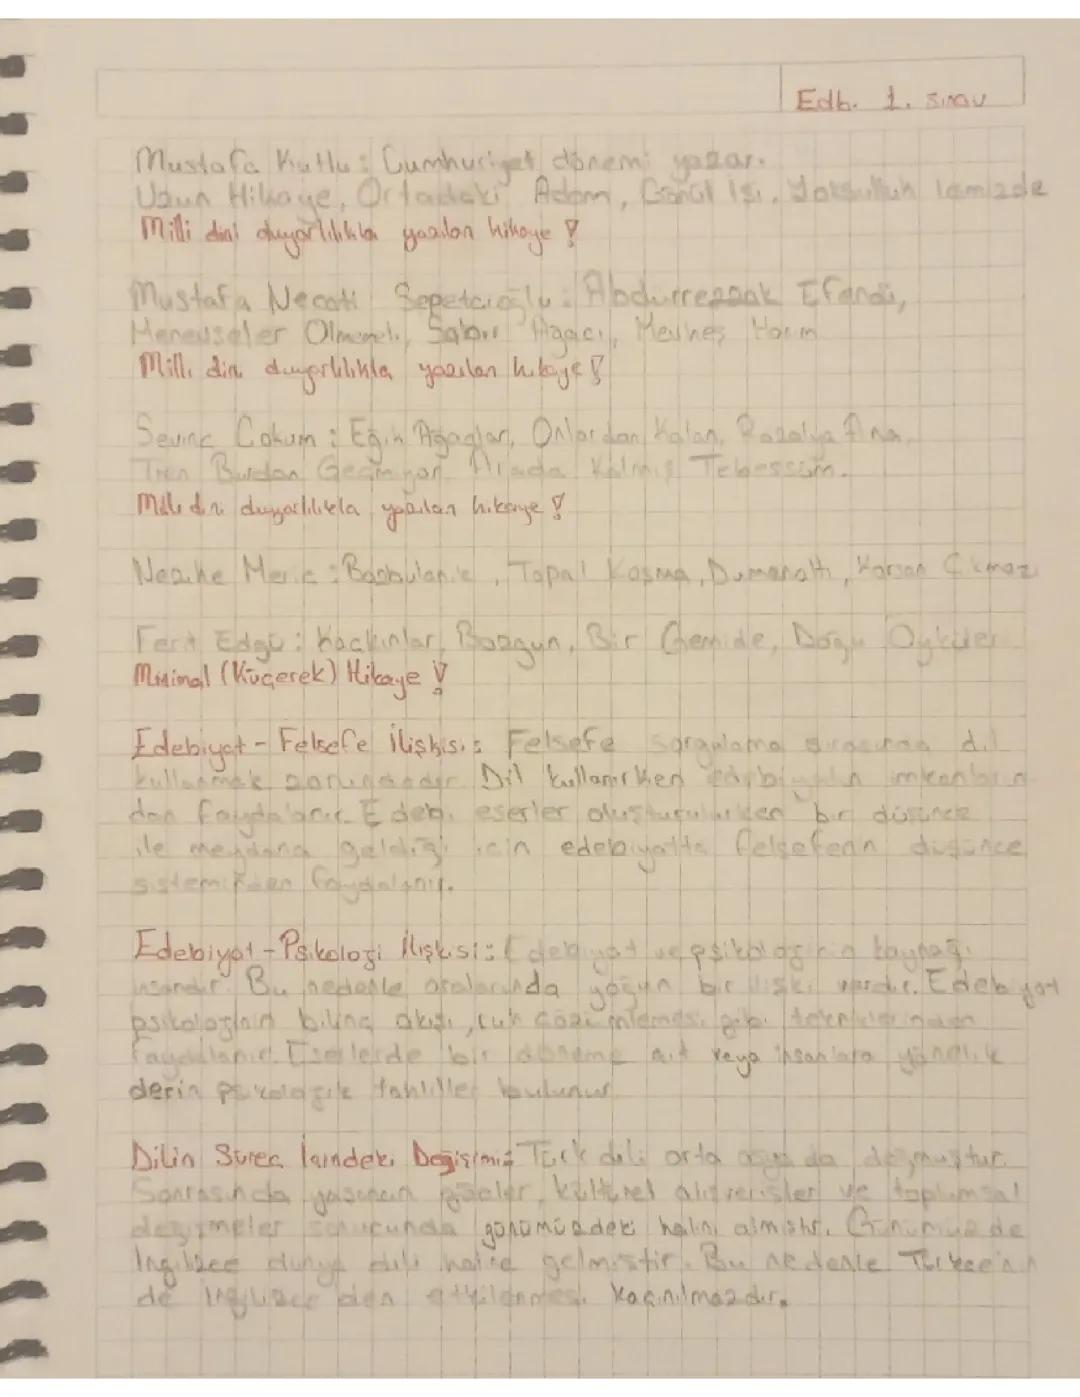 Edb. 1. Sınav
Mustafa Kutlu : Cumhuriyet dönemi yazar.
Uzun Hikaye, Ortadaki Adam, Gönül İşi, Yoksulluk İçimizde
Milli dini duyarlılıkla yazılan hikaye !
Mustafa Necati Sepetcioğlu : Abdürrezzak Efendi,
Menevşeler Ölmemeli, Sabır Ağacı,
Milli dini duyarlılıkla yazılan hikaye !
Sevinç Çokum : Eğik Ağaçlar, Onlardan Kalan, Rozalya Ana,
Tren Burdan Geçmiyor, Arada Kalmış Tebessüm.
Milli dini duyarlılıkla yazılan hikaye !
Nezihe Meriç : Bozbulanık, Topal Koşma, Dumanaltı, Korsan Çıkmazı
Ferit Edgü : Kaçkınlar, Bozgun, Bir Gemide, Doğu Öyküleri
Minimal (Küçerek) Hikaye !
Edebiyat - Felsefe İlişkisi : Felsefe sorgulama sırasında dil
kullanmak zorundadır. Dil kullanırken edebiyatın imkanların
dan faydalanır. Edebi eserler oluşturulurken bir düşünce
ile meydana geldiği için edebiyatta felsefenin düşünce
sisteminden faydalanır.
Edebiyat - Psikoloji İlişkisi : Edebiyat ve psikolojinin kaynağı
insandır. Bu nedenle aralarında yoğun bir ilişki vardır. Edebiyat
psikolojinin bilinç akışı, ruh çözümlemesi gibi tekniklerinden
faydalanır. Eserlerde bir döneme ait veya insanlara yönelik
derin psikolojik tahliller bulunur.
Dilin Süreç İçindeki Değişimi : Türk dili orta asya da doğmuştur.
Sonrasında yaşanan göçler, kültürel alışverişler ve toplumsal
değişmeler sonucunda günümüzdeki halini almıştır. Günümüzde
İngilizce dünya dili haline gelmiştir. Bu nedenle Türkçe'nin
de İngilizce'den etkilenmesi kaçınılmazdır.